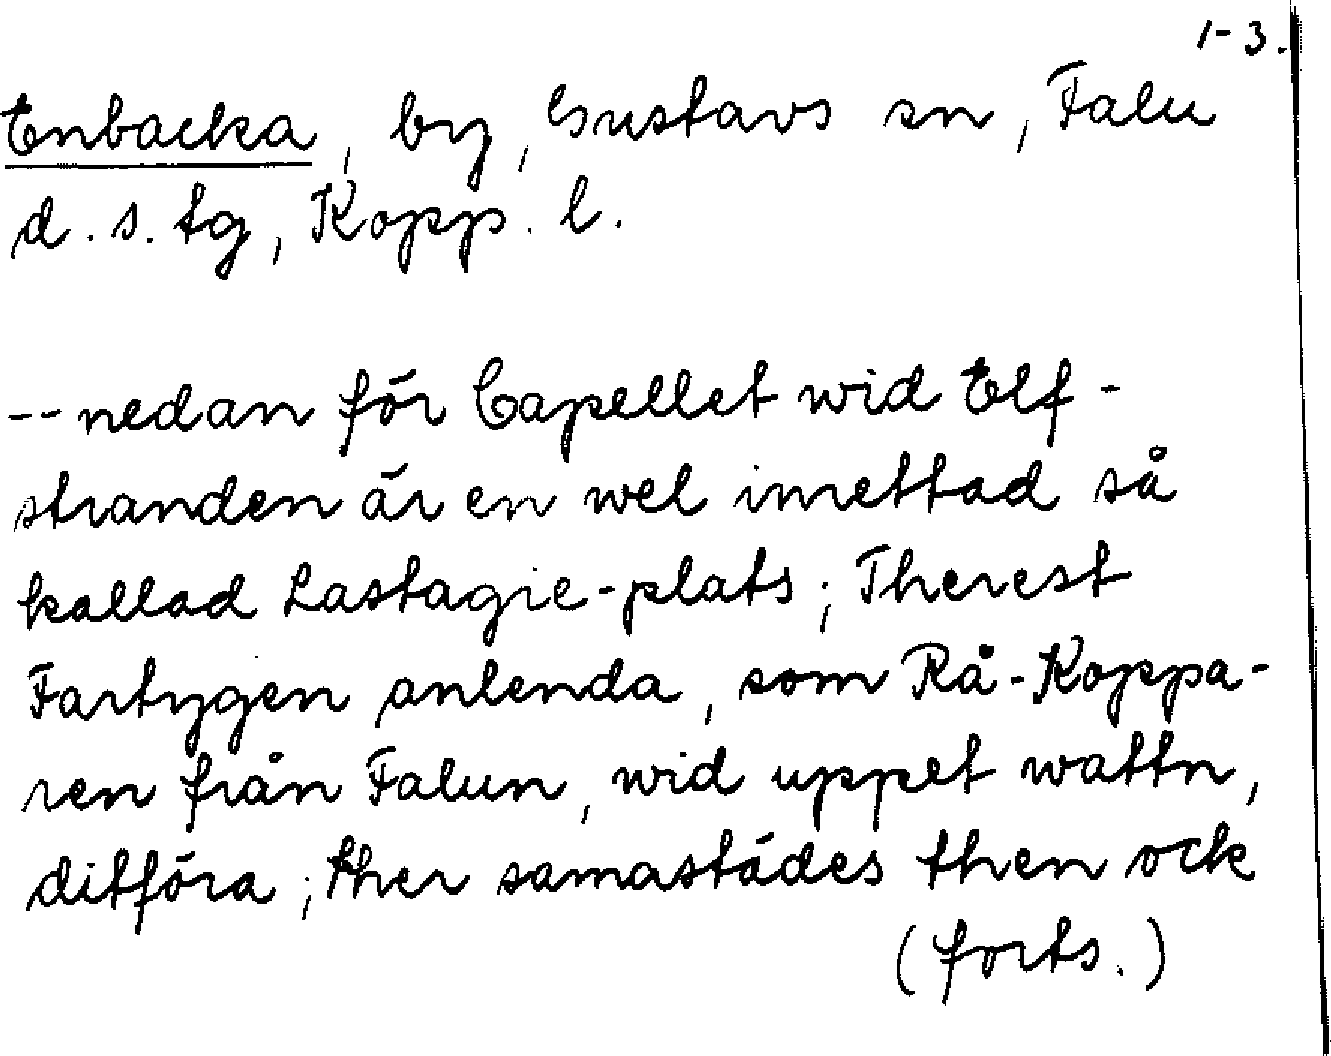 1-3.
Enbacka, by, Gustavs sn, Falu
d. s. tg, Kopp. l.
-- nedan för Capellet wid Elf-
stranden är en wel inrettad så
kallad Lastagie-plats; Therest
Fartygen anlenda, som Rå-Koppa-
ren från Falun, wid uppet wattn,
ditföra; ther samastädes then ock
(forts.)